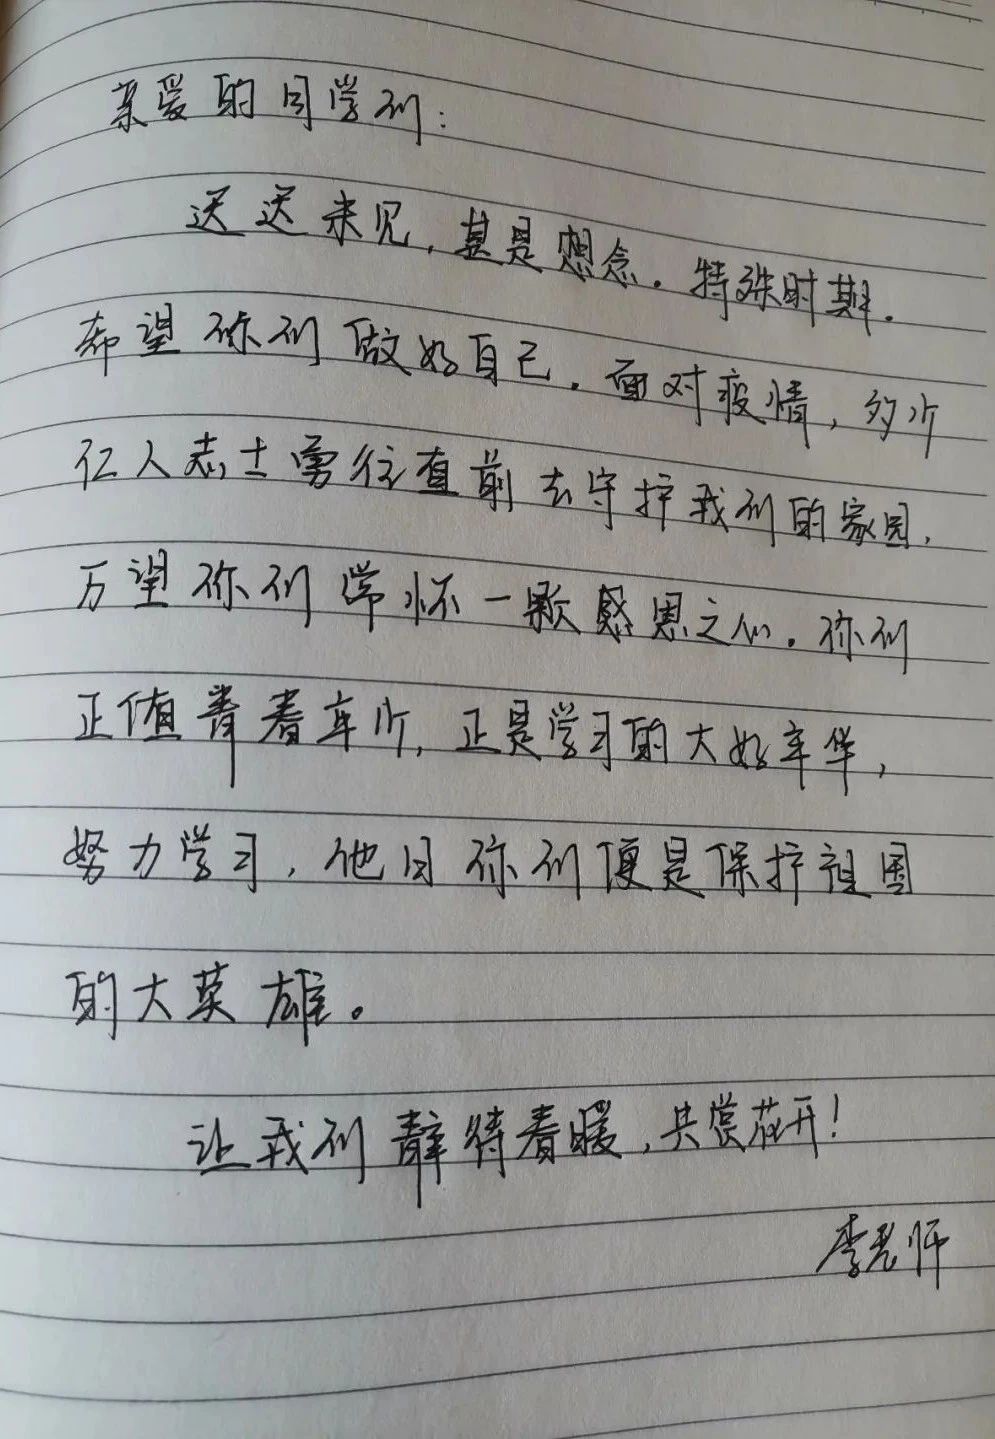 亲爱的同学们:
迟迟未见,甚是想念。特殊时期,
希望你们做好自己。面对疫情,多少
仁人志士勇往直前去守护我们的家园,
万望你们常怀一颗感恩之心。你们
正值青春年少,正是学习的大好年华,
努力学习,他日你们便是保护祖国
的大英雄。
让我们静待春暖,共赏花开!
李老师